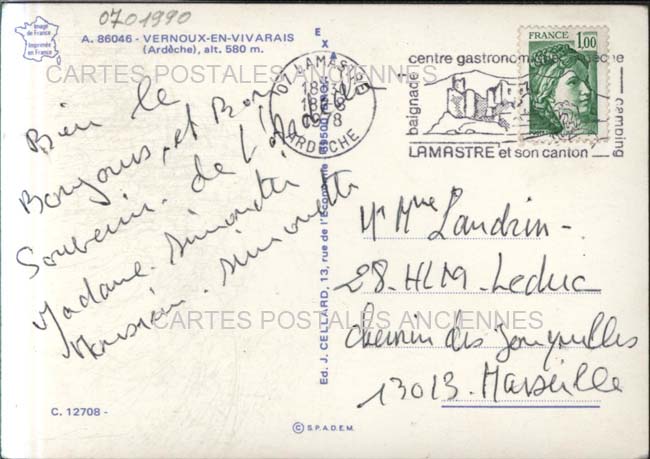 0701990
Image
de France
Imprimée
en France
A. 86046 - VERNOUX-EN-VIVARAIS
(Ardèche), alt. 580 m.
CARTES POSTALES ANCIENNES
Bien le
Bonjours, et Bon
Souvenir de l'Ardèche
Madame Simonetti
Monsieur Simonetti
07 LAMASTRE
18 H
1978
ARDECHE
centre gastronomique
baignade
camping
LAMASTRE et son canton
FRANCE
1,00
Mr Mme Landrin -
28 - HLM - Leduc
Chemin des Jonquilles
13013 - Marseille
Ed. J. CELLARD, 13, rue de l'Economie - 69500 BRON
CARTES POSTALES ANCIENNES
C. 12708 -
© S.P.A.D.E.M.